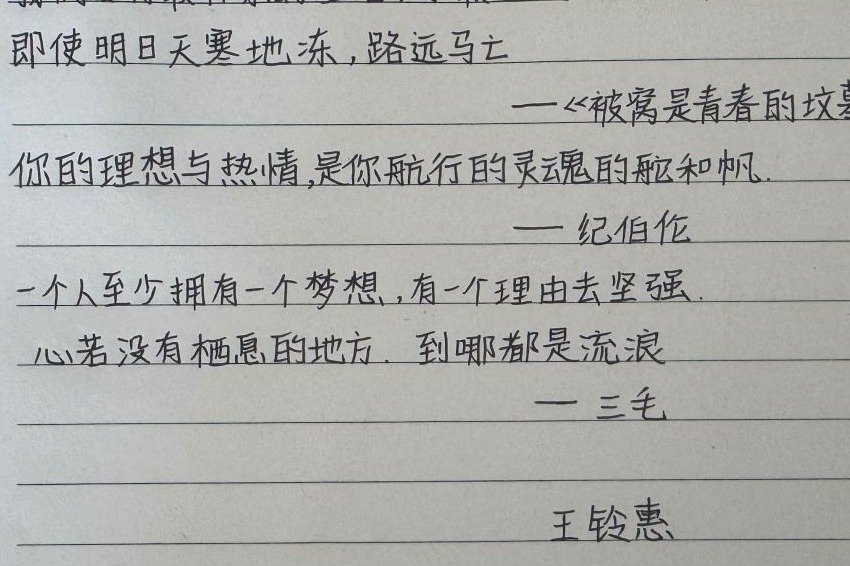 即使明日天寒地冻,路远马亡
—《被窝是青春的坟墓
你的理想与热情,是你航行的灵魂的舵和帆.
— 纪伯伦
一个人至少拥有一个梦想,有一个理由去坚强.
心若没有栖息的地方.到哪都是流浪
— 三毛
王铃惠